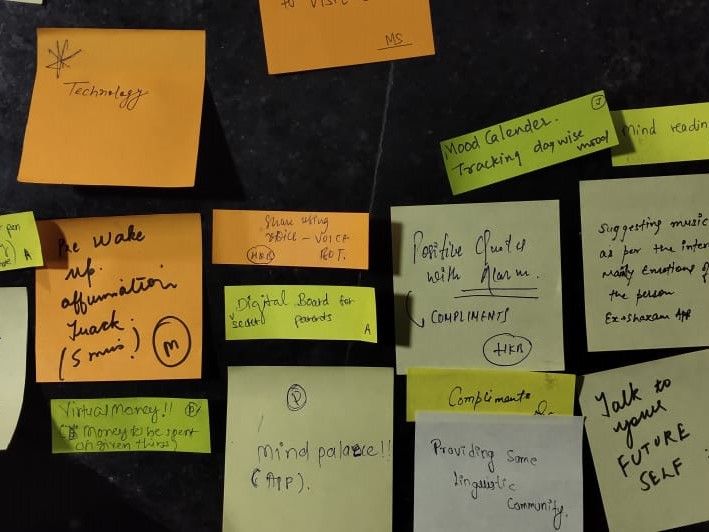 to visit
MS
Technology
Mood Calender.
Tracking day wise mood
J
mind readin
pen
A
Pre wake
up
affirmation
Track.
(5 mins)
M
Share using
VOICE – VOICE
BOT.
HKB
Digital Board for
parents
A
Positive Quotes
with Alarm.
COMPLIMENTS
HKB
Suggesting music
as per the inter
Emotions of
the person
Ex → Shazam App
Virtual Money!! P
Money to be spent
on given things)
P
mind palace!!
(APP).
Compliments
Providing some
linguistic
Community.
Talk to
your
FUTURE
SELF